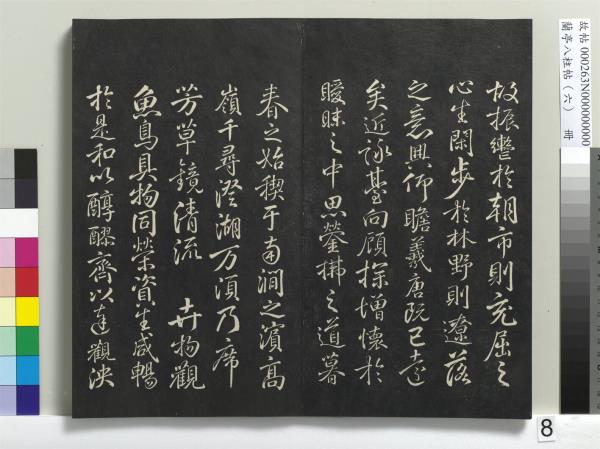 故振轡於朝市則充屈之
心生閑步於林野則遼落
之意興仰瞻羲唐已遠
矣近詠臺向顧探增懷於
曖昧之中思縈拂之道暮
春之始禊于南澗之濱高
嶺千尋澄湖万頃乃席
芳草鏡清流 卉物觀
魚鳥具物同榮資生咸暢
於是和以醇醪齊以達觀泱
故帖 000263N000000000
蘭亭八柱帖(六) 冊
8